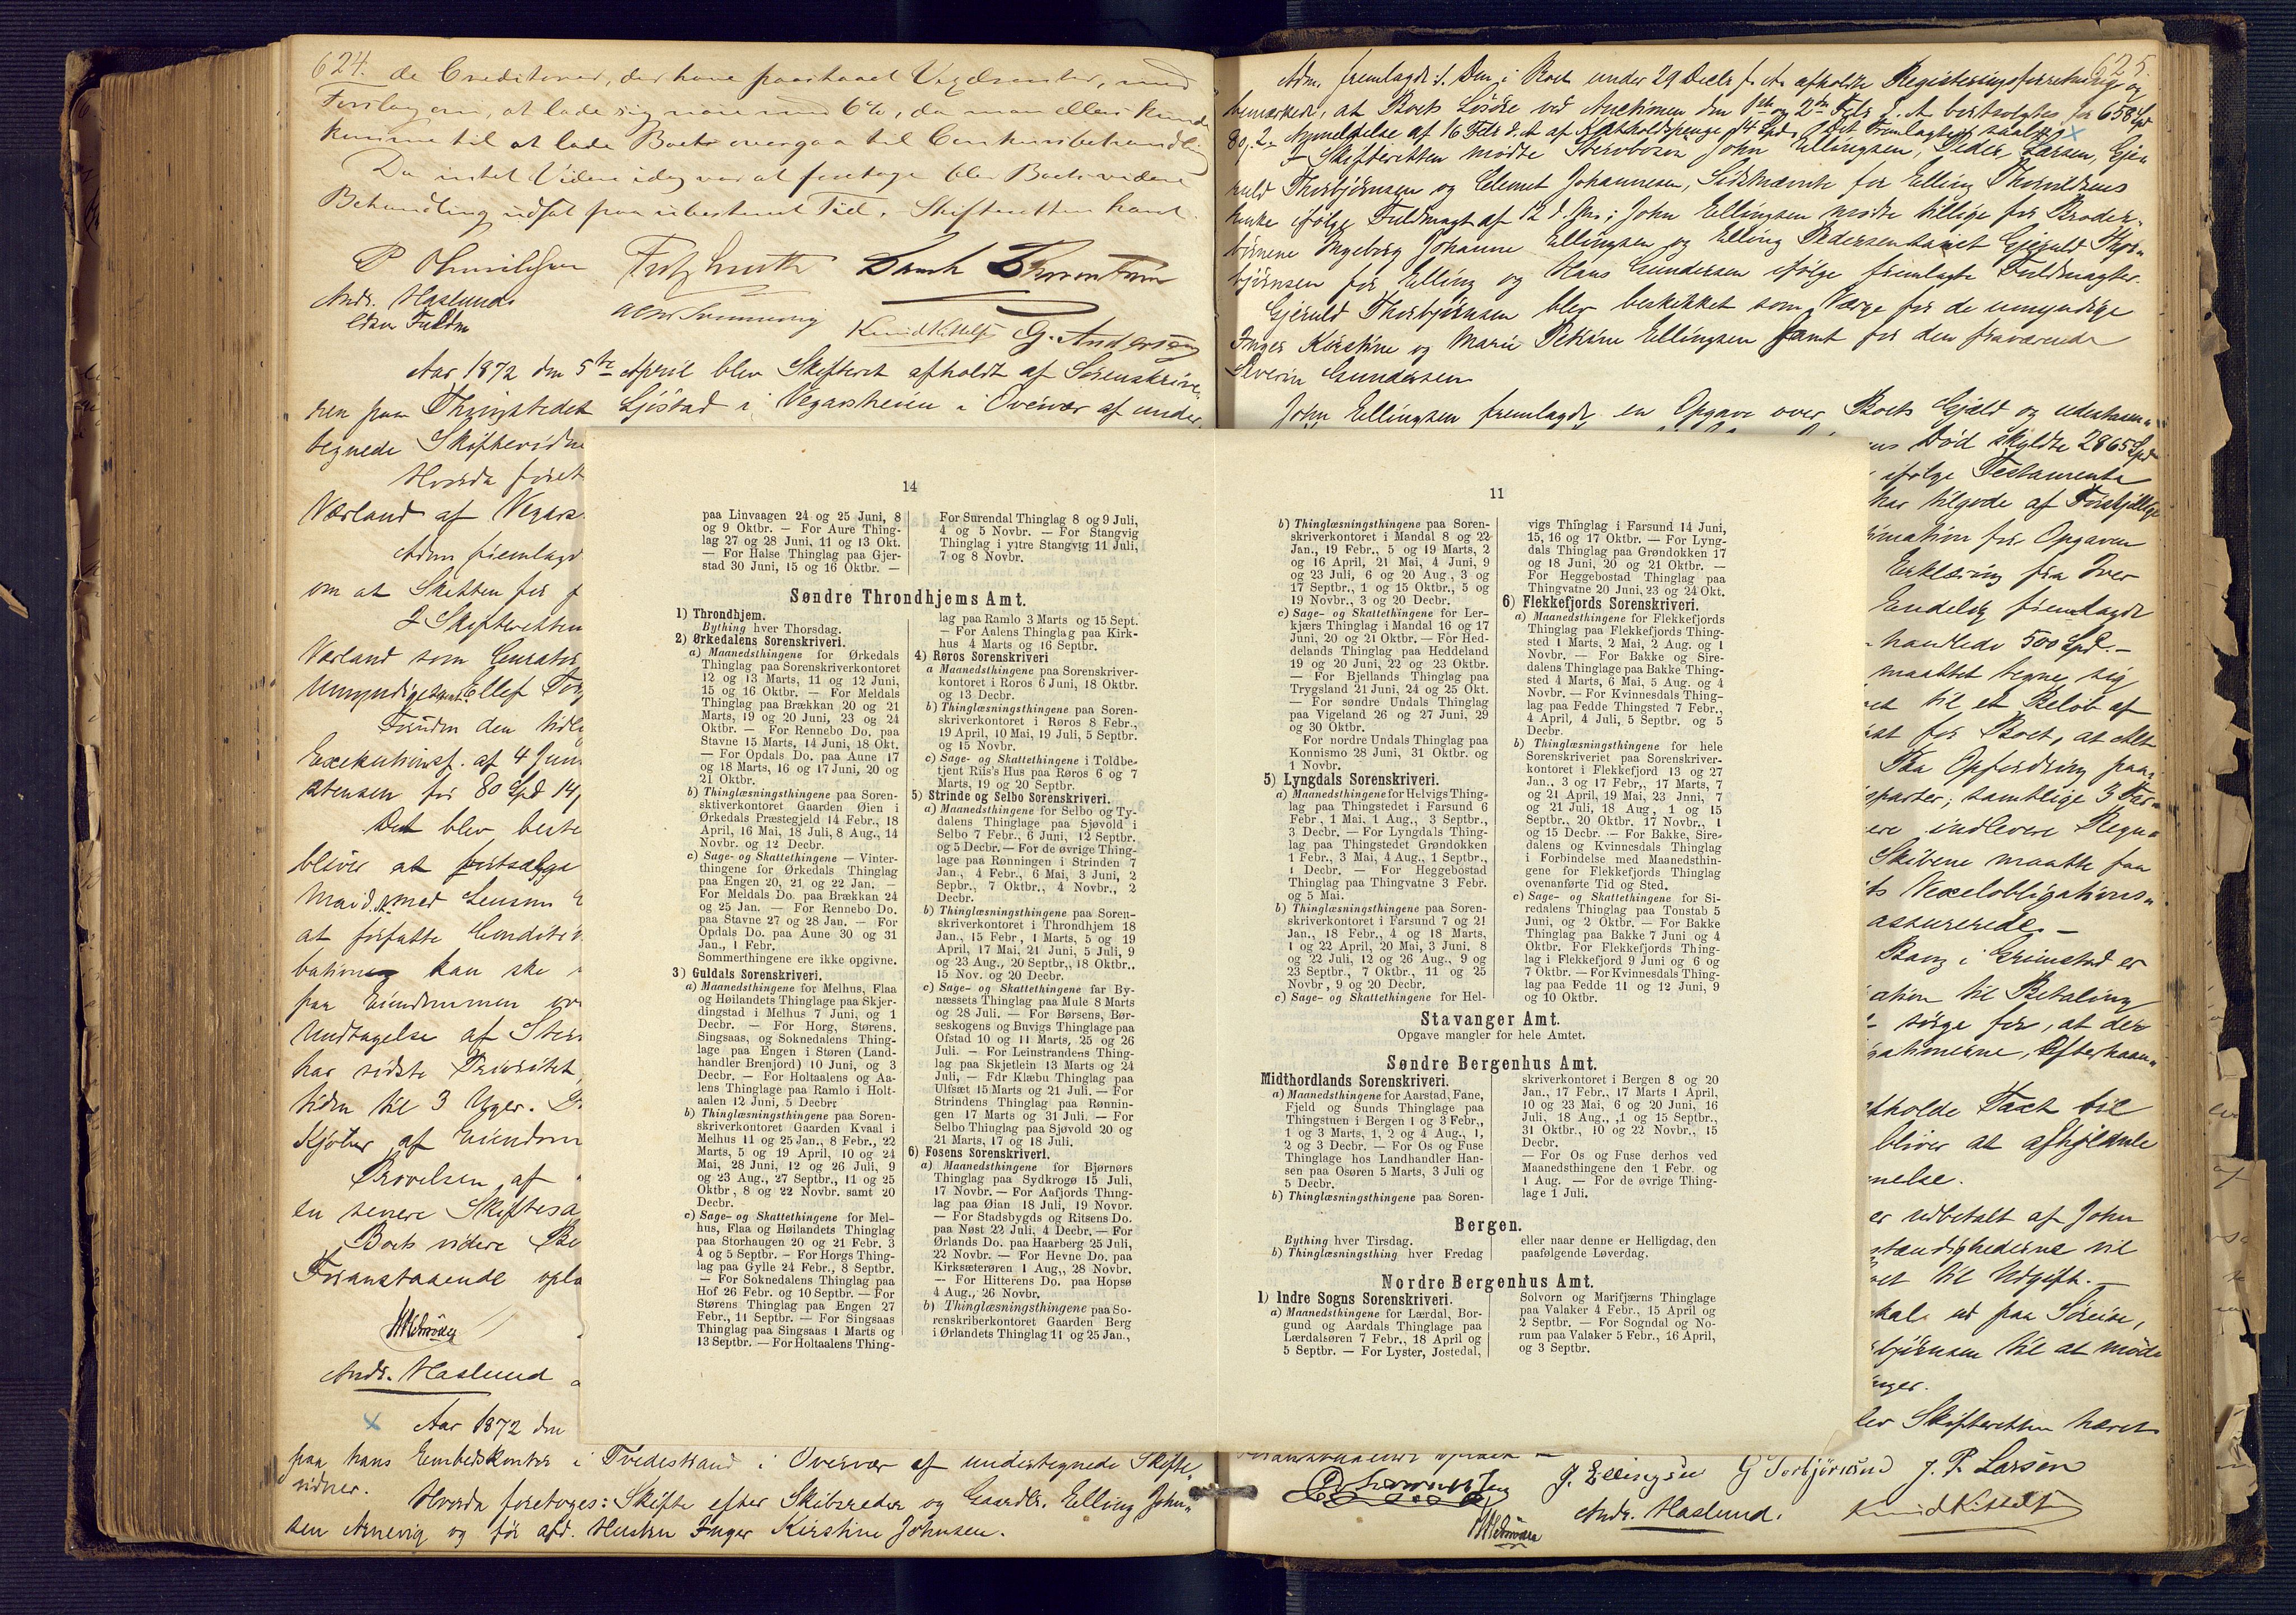 624.
de Creditorer, der have paastaaet Vexelrenter, med
Forslag om, at lade sig nøie med 6%, da man ellers kunde
komme til at lade Boet overgaa til Concursbehandling
Da intet Videre idag var at foretage blev Boets videre
Behandling udsat paa ubestemt Tid. Skifteretten hævet.
Andr. Haslund
Knud Kittelsen G. Andersen
Aar 1872 den 5te April blev Skifteret afholdt af Sorenskrive-
ren paa Thingstedet Sjöstad i Vegarsheien i Overvær af under-
tegnede Skiftevidne
Hvorda foret
Værland af Vegars
Adm fremlagd
om at Skiften for
I Skifteretten
Værland som Curator
Umyndige samt Ellef
Forinden den tidl
Executionsf. af 4 Juni
stensen for 80 Spd 14
Det blev beste
bliver at fortsælge
at forfatte Condition
bationen kan ske
paa Eiendommen
Undtagelse af
har sidste Prioritet,
tiden til 3 Uger.
Kjøber af Eiendom
Prøvelsen af
en senere Skiftesa
Boets videre Be
Foranstaaende opla
Andr. Haslund
x Aar 1872 den
paa hans Embedskontor i Tvedestrand i Overvær af undertegnede Skifte-
vidner.
Hvorda foretoges: Skifte efter Skibsreder og Gaardbr. Elling John-
sen Arnevig og før afd. Hustru Inger Kirstine Johnsen.
14
paa Linvaagen 24 og 25 Juni, 8
og 9 Oktbr. — For Aure Thing-
lag 27 og 28 Juni, 11 og 13 Okt.
— For Halse Thinglag paa Gjer-
stad 30 Juni, 15 og 16 Oktbr. —
For Surendal Thinglag 8 og 9 Juli,
4 og 5 Novbr. — For Stangvig
Thinglag i ytre Stangvig 11 Juli,
7 og 8 Novbr.
Søndre Throndhjems Amt.
1) Throndhjem.
Bything hver Thorsdag.
2) Ørkedalens Sorenskriveri.
a) Maanedsthingene for Ørkedals
Thinglag paa Sorenskriverkontoret
12 og 13 Marts, 11 og 12 Juni,
15 og 16 Oktbr. — For Meldals
Thinglag paa Brækkan 20 og 21
Marts, 19 og 20 Juni, 23 og 24
Oktbr. — For Rennebo Do. paa
Stavne 15 Marts, 14 Juni, 18 Okt.
— For Opdals Do. paa Aune 17
og 18 Marts, 16 og 17 Juni, 20 og
21 Oktbr.
b) Thinglæsningsthingene paa Soren-
sktiverkontoret Gaarden Øien i
Ørkedals Præstegjeld 14 Febr., 18
April, 16 Mai, 18 Juli, 8 Aug., 14
Novbr. og 12 Decbr.
c) Sage- og Skattethingene — Vinter-
thingene for Ørkedals Thinglag
paa Engen 20, 21 og 22 Jan. —
For Meldals Do. paa Brækkan 24
og 25 Jan. — For Rennebo Do.
paa Stavne 27 og 28 Jan. — For
Opdals Do. paa Aune 30 og 31
Jan., 1 Febr.
Sommerthingene ere ikke opgivne.
3) Guldals Sorenskriveri.
a) Maanedsthingene for Melhus, Flaa
og Høilandets Thinglage paa Skjer-
dingstad i Melhus 7 Juni, og 1
Decbr. — For Horg, Størens.
Singsaas, og Soknedalens Thing-
lage paa Engen i Støren (Land-
handler Brenjord) 10 Juni, og 3
Decbr. — For Holtaalens og Aa-
lens Thinglage paa Ramlo i Holt-
aalen 12 Juni, 5 Decbr.
b) Thinglæsningsthingene paa Soren-
skriverkontoret Gaarden Kvaal i
Melhus 11 og 25 Jan., 8 Febr., 22
Marts, 5 og 19 April, 10 og 24
Mai, 28 Juni, 12 og 26 Juli, 9
og 23 Aug., 27 Septbr., 11 og 25
Oktbr, 8 og 22 Novbr. samt 20
Decbr.
c) Sage- og Skattethingene for Mel-
hus, Flaa og Høilandets Thinglag
paa Storhaugen 20 og 21 Febr. 3
4 og 5 Septbr. — For Horgs Thing-
lag paa Gylle 24 Febr., 8 Septbr.
— For Soknedalens Thinglag paa
Hof 26 Febr. og 10 Septbr. — For
Størens Thinglag paa Engen 27
Febr., 11 Septbr. — For Singsaas
Thinglag paa Singsaas 1 Marts og
13 Septbr. — For Holtaalens Thing-
lag paa Ramlo 3 Marts og 15 Sept.
— For Aalens Thinglag paa Kirk-
hus 4 Marts og 16 Septbr.
4) Røros Sorenskriveri
a Maanedsthingene paa Sorenskriver-
kontoret i Røros 6 Juni, 18 Oktbr.
og 13 Decbr.
b) Thinglæsningsthingene paa Soren-
skriverkontoret i Røros 8 Febr.,
19 April, 10 Mai, 19 Juli, 5 Septbr.
og 15 Novbr.
c) Sage- og Skattethingene i Toldbe-
tjent Riis's Hus paa Røros 6 og 7
Marts, 19 og 20 Septbr.
5) Strinde og Selbo Sorenskriveri.
a) Maanedsthingene for Selbo og Ty-
dalens Thinglage paa Sjøvold i
Selbo 7 Febr., 6 Juni, 12 Septbr.
og 5 Decbr. — For de øvrige Thing-
lage paa Rønningen i Strinden 7
Jan., 4 Febr., 6 Mai, 3 Juni, 2
Sepbr., 7 Oktbr., 4 Novbr., 2
Decbr.
b) Thinglæsningsthingene paa Soren-
skriverkontoret i Throndhjem 18
Jan., 15 Febr, 1 Marts, 5 og 19
April, 17 Mai, 21 Juni, 5 Juli, 9
og 23 Aug., 20 Septbr,, 18 Oktbr..
15 Nov. og 20 Decbr.
c) Sage- og Skattethingene far By-
næssets Thinglag paa Mule 8 Marts
og 28 Juli. — For Børsens, Bør-
seskogens og Buvigs Thinglage paa
Ofstad 10 og 11 Marts, 25 og 26
Juli. — For Leinstrandens Thing-
lag paa Skjetlein 13 Marts og 24
Juli, — Fdr Klæbu Thinglag paa
Ulfsæt 15 Marts og 21 Juli. — For
Strindens Thinglag paa Rønnin-
gen 17 Marts og 31 Juli. — For
Selbo Thiuglag paa Sjøvold 20 og
21 Marts, 17 og 18 Juli.
6) Fosens Sorenskriveri.
a) Maanedsthingene for Bjørnørs
Thinglag paa Sydkrogø 15 Juli,
17 Novbr. — For Aafjords Thing-
lag paa Øian 18 Juli, 19 Novbr.
— For Stadsbygds og Ritsens Do.
paa Nøst 22 Juli, 4 Decbr. — For
Ørlands Do. paa Haarberg 25 Juli,
22 Novbr. — For Hevne Do. paa
Kirksæterøren 1 Aug,, 28 Novbr.
— For Hitterens Do. paa Hopsø
4 Aug., 26 Novbr.
b) Thinglæsningsthingene paa So-
renskriberkontoret Gaarden Berg
i Ørlandets Thinglag 11 og 25 Jan.,
625.
Adm. fremlagde: 1. Den i Boet under 29 Decbr f. A. afholdte Registreringsforretning og
bemærkede, at Boets Løsøre ved Auctionen den 1ste og 2den Febr d. A. bortsolgtes for 658 Spd
80, 2. Anmeldelse af 16 Febr d. A. af Kostholdspenge 14 Spd. Det fremlagte saal. x
I Skifteretten mødte Stervboson John Ellingsen, Peder Larsen, Gje-
ruld Thorbjörnsen og Clemet Johannesen, Sidstnævnte for Elling Thorvildsens
Enke ifølge Fuldmagt af 12 d. Ms.; John Ellingsen mødte tillige for Broder-
børnene Ingeborg Johanne Ellingsen og Elling Pedersen samt Gjeruld Thor-
bjørnsen for Elling og Hans Gundersen ifølge fremlagte Fuldmagter.
Gjeruld Thorbjørnsen blev beskikket som Værge for de umyndige
Inger Kirstine og Marie Petrine Ellingsen samt for den fraværende
Severin Gundersen
John Ellingsen fremlagde en Opgave over Boets Gjæld og udestaaen-
Død skyldte 2865 Spd
ifølge Testamente
har tilgode af Forskjellige
for Opgaven
Erklæring fra Over
Endelig fremlagde
handlede 500 Spd. —
maattet tegne sig
til et Beløb af
for Boet, at Alt
Paa Opfordring paa
parter; samtlige 3 Far-
indlevere Regn-
Skibene maatte faa
Vexelobligations-
assurerede. —
Bang i Grimstad er
til Betaling
sørge for, at der
Efterhaan-
afholde Taxt til
bliver at afhjemle
nelse.
er udbetalt af John
stændighederne vil
til Udgift. —
skal ud paa Sóreise,
bjørnsen til at møde
lev Skifteretten hævet
J. Ellingsen G Torbjörnsend J. P. Larsen
Andr. Haslund. Knud Kittelsen
11
b) Thinglæsningsthingene paa Soren-
skriverkontoret i Mandal 8 og 22
Jan., 19 Febr., 5 og 19 Marts, 2
og 16 April, 21 Mai, 4 Juni, 9
og 23 Juli, 6 og 20 Aug, 3 og
17 Septbr., 1 og 15 Oktbr., 5 og
19 Novbr., 3 og 20 Decbr.
c) Sage- og Skattethingene for Ler-
kjærs Thinglag i Mandal 16 og 17
Juni, 20 og 21 Oktbr. — For Hed-
delands Thinglag paa Heddeland
19 og 20 Juni, 22 og 23 Oktbr.
— For Bjellands Thinglag paa
Trygsland 21 Juni, 24 og 25 Okt.
— For søndre Undals Thinglag
paa Vigeland 26 og 27 Juni, 29
og 30 Oktbr.
For nordre Undals Thinglag paa
Konnismo 28 Juni, 31 Oktbr. og
1 Novbr.
5) Lyngdals Sorenskriveri.
a) Maanedsthingene for Helvigs Thing-
lag paa Thingstedet i Farsund 6
Febr, 1 Mai, 1 Aug., 3 Septbr.,
3 Decbr. — For Lyngdals Thing-
lag paa Thingstedet Grøndokken
1 Febr., 3 Mai, 4 Aug., 1 Septbr.,
1 Decbr. — For Heggebostad
Thinglag paa Thingvatne 3 Febr.
og 5 Mai.
b) Thinglæsningsthingene paa Soren-
skriverkontoret i Farsund 7 og 21
Jan., 18 Febr., 4 og 18 Marts,
1 og 22 April, 20 Mai, 3 Juni. 8
og 22 Juli, 12 og 26 Aug., 9 og
23 Septbr., 7 Oktbr., 11 og 25
Novbr, 9 og 20 Decbr.
c) Sage- og Skattethingene for Hel-
vigs Thinglag i Farsund 14 Juni,
15, 16 og 17 Oktbr. — For Lyng-
dals Thinglag paa Grøndokken 17
og 18 Juni, 20 og 21 Oktbr. —
For Heggebostad Thinglag paa
Thingvatne 20 Juni, 23 og 24 Okt.
6) Flekkefjords Sorenskriveri.
a) Maanedsthingene for Flekkefjords
Thinglag paa Flekkefjords Thing-
sted 1 Marts, 2 Mai, 2 Aug. og 1
Novbr. — For Bakke og Sire-
dalens Thinglage paa Bakke Thing-
sted 4 Marts, 6 Mai, 5 Aug. og 4
Novbr. — For Kvinnesdals Thing-
lag paa Fedde Thingsted 7 Febr.,
4 April, 4 Juli, 5 Septbr. og 5
Decbr.
b) Thinglæsningsthingene for hele
Sorenskriveriet paa Sorenskriver-
kontoret i Flekkefjord 13 og 27
Jan., 3 og 17 Febr,, 17 Marts, 7
og 21 April, 19 Mai, 23 Jnni, 7
og 21 Juli, 18 Aug, 1 og 15
Septbr., 20 Oktbr. 17 Novbr., 1
og 15 Decbr. — For Bakke, Sire-
dalens og Kvinnesdals Thinglag
i Forbindelse med Maanedsthin-
gene for Flekkefjords Thinglag
ovenanførte Tid og Sted.
c) Sage- og Skattethingene for Si-
redalens Thinglag paa Tonstab 5
Juni, og 2 Oktbr. — For Bakke
Thinglag paa Bakke 7 Juni og 4
Oktbr. For Flekkefjords Thing-
lag i Flekkefjord 9 Juni og 6 og
7 Oktbr. — For Kvinnesdals Thing-
lag paa Fedde 11 og 12 Juni, 9
og 10 Oktbr.
Stavanger Amt.
Opgave mangler for hele Amtet.
Søndre Bergenhus Amt.
Midthordlands Sorenskriveri.
a) Maanedsthingene for Aarstad, Fane,
Fjeld og Sunds Thinglage paa
Thingstuen i Bergen 1 og 3 Febr.,
1 og 3 Marts, 1, 2 og 4 Aug., 1,
2 og 3 Decbr. — For Os og Fuse
Thinglage hos Landhandler Han-
sen paa Osøren 5 Marts, 3 Juli og
5 Decbr.
b) Thinglæsningsthingene paa Soren-
skriverkontoret i Bergen 8 og 20
Jan., 17 Febr., 17 Marts 1 April,
10 og 23 Mai, 6 og 20 Juni, 16
Juli, 18 Aug., ,1 og 15 Septbr.,
31 Oktbr., 10 og 22 Novbr., 15
Decbr.
— For Os og Fuse derhos ved
Maanedsthingene den 1 Febr. og
1 Aug. — For de øvrige Thing-
lage 1 Juli.
Bergen.
Bything hver Tirsdag.
b) Thinglæsningsthing hver Fredag
eller naar denne er Helligdag, den
paafølgende Løverdag.
Nordre Bergenhus Amt.
1) Indre Sogns Sorenskriveri.
a) Maanedsthingene for Lærdal, Bor-
gund og Aardals Thinglage paa
Lærdalsøren 7 Febr., 18 April og
5 Septbr. — For Lyster, Jostedal,
Solvorn og Marifjærns Thinglage
paa Valaker 4 Febr., 15 April og
2 Septbr. — For Sogndal og No-
rum paa Valaker 5 Febr., 16 April,
og 3 Septbr.